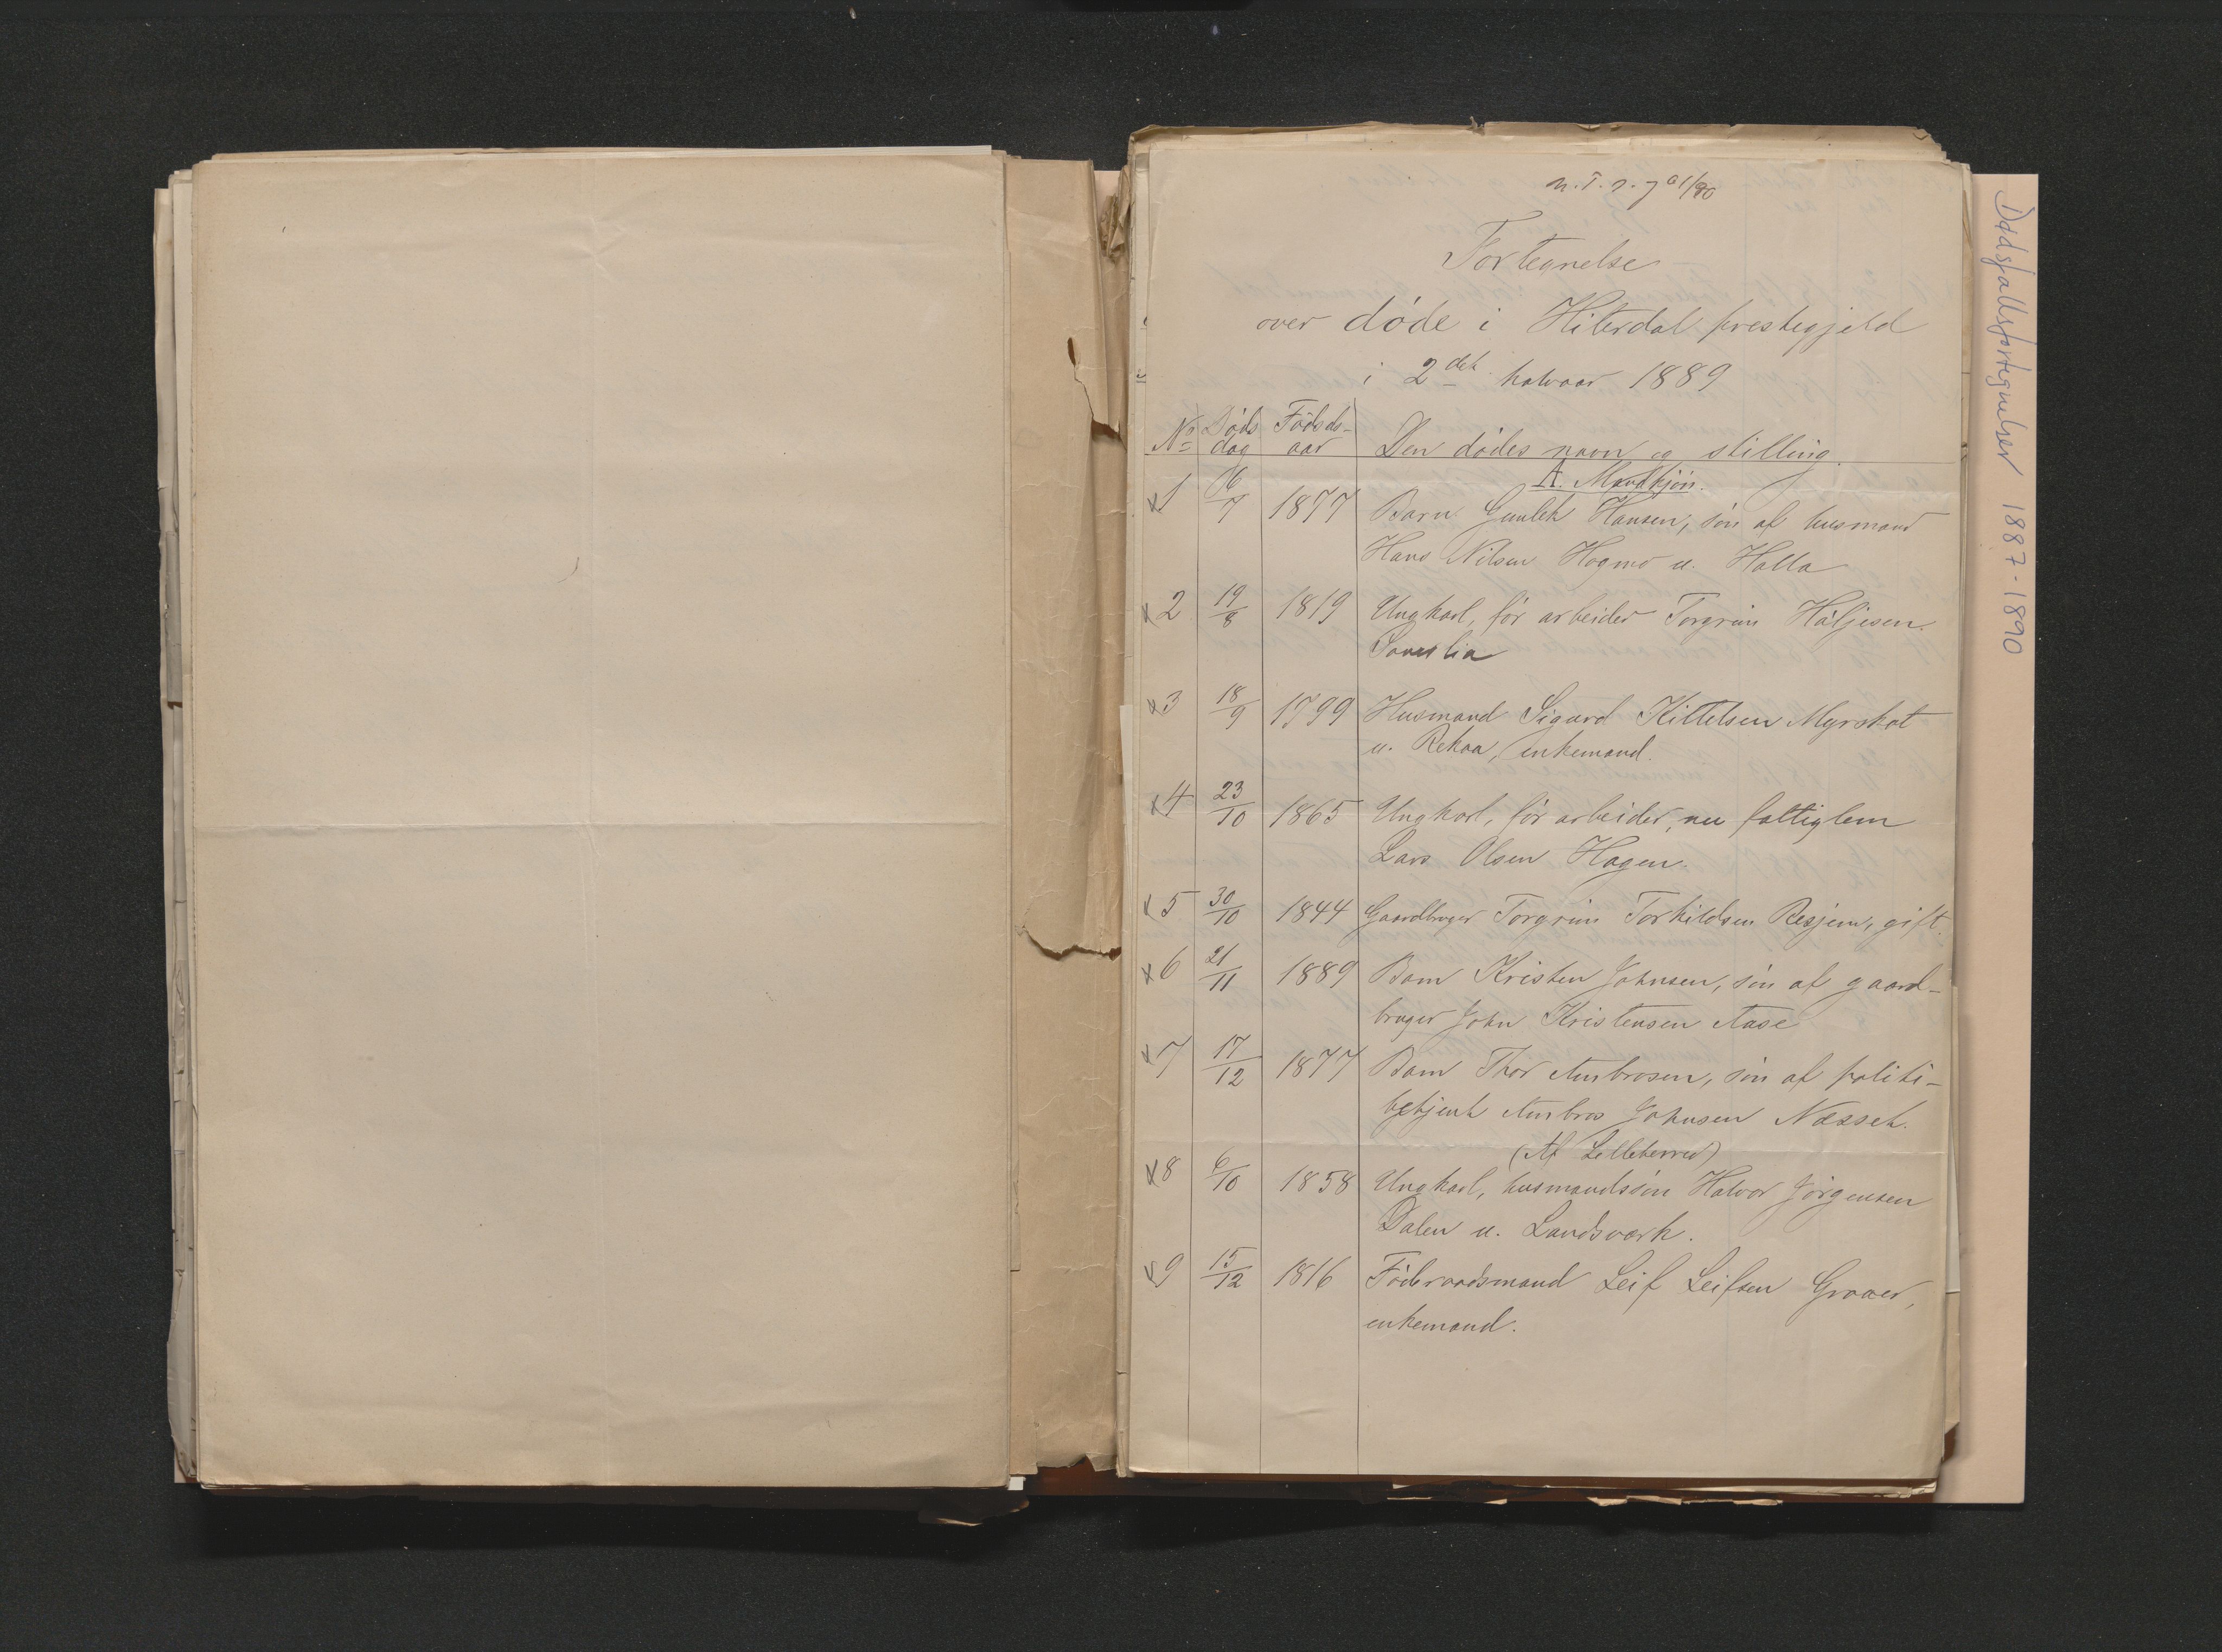 Fortegnelse
over døde i Hiterdal prestegjeld
i 2det halvaar 1889
No Døds dag Fødsels-aar Den dødes navn og stilling.
A. Mandkjøn.
x1 16/7 1877 Barn Gunlek Hansen, søn af husmand
Hans Nilsen Hogmo u. Halla
x2 19/8 1819 Ungkarl, før arbeider Torgrim Håljesen
x3 18/9 1799 Husmand Sigurd Kittelsen Myrskot
u. Rekaa, enkemand.
x4 23/10 1865 Ungkarl, før arbeider, nu fattiglem
Lars Olsen Hagen.
x5 30/10 1844 Gaardbruger Torgrim Torkildsen Resjem, gift.
x6 21/11 1889 Barn Kristen Johnsen, søn af gaard-
bruger John Kristensen Aase
x7 17/12 1877 Barn Thor Ambrosen, søn af politi-
betjent Ambros Johnsen Næsset.
(Af Lilleherred)
x8 6/10 1858 Ungkarl, husmandssøn Halvor Jørgensen
Dalen u. Landsværk.
x9 15/12 1816 Føderaadsmand Leif Leifsen Graaer,
enkemand.
Dødsfallsfortegnelser 1887-1890